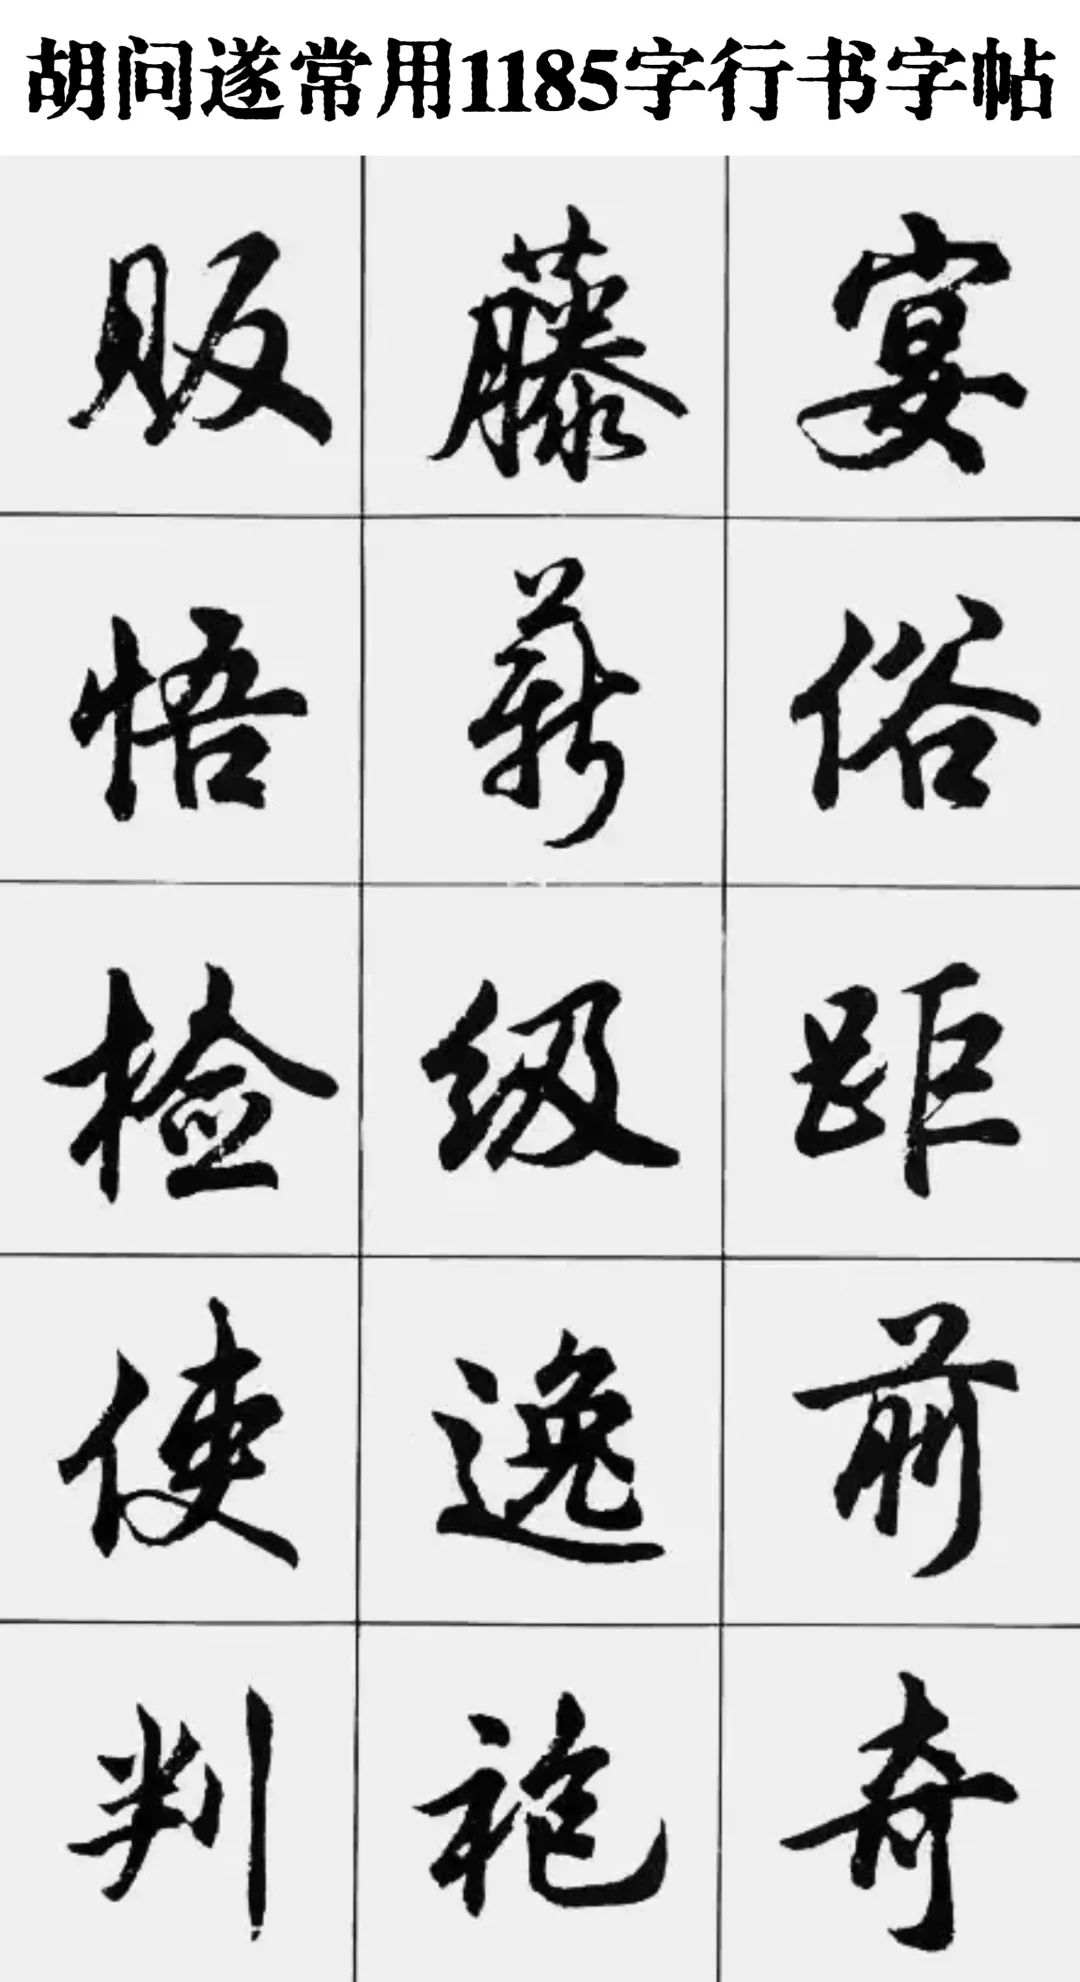 胡问遂常用1185字行书字帖
贩藤宴
悟薪俗
检级距
使逸前
判袍奇